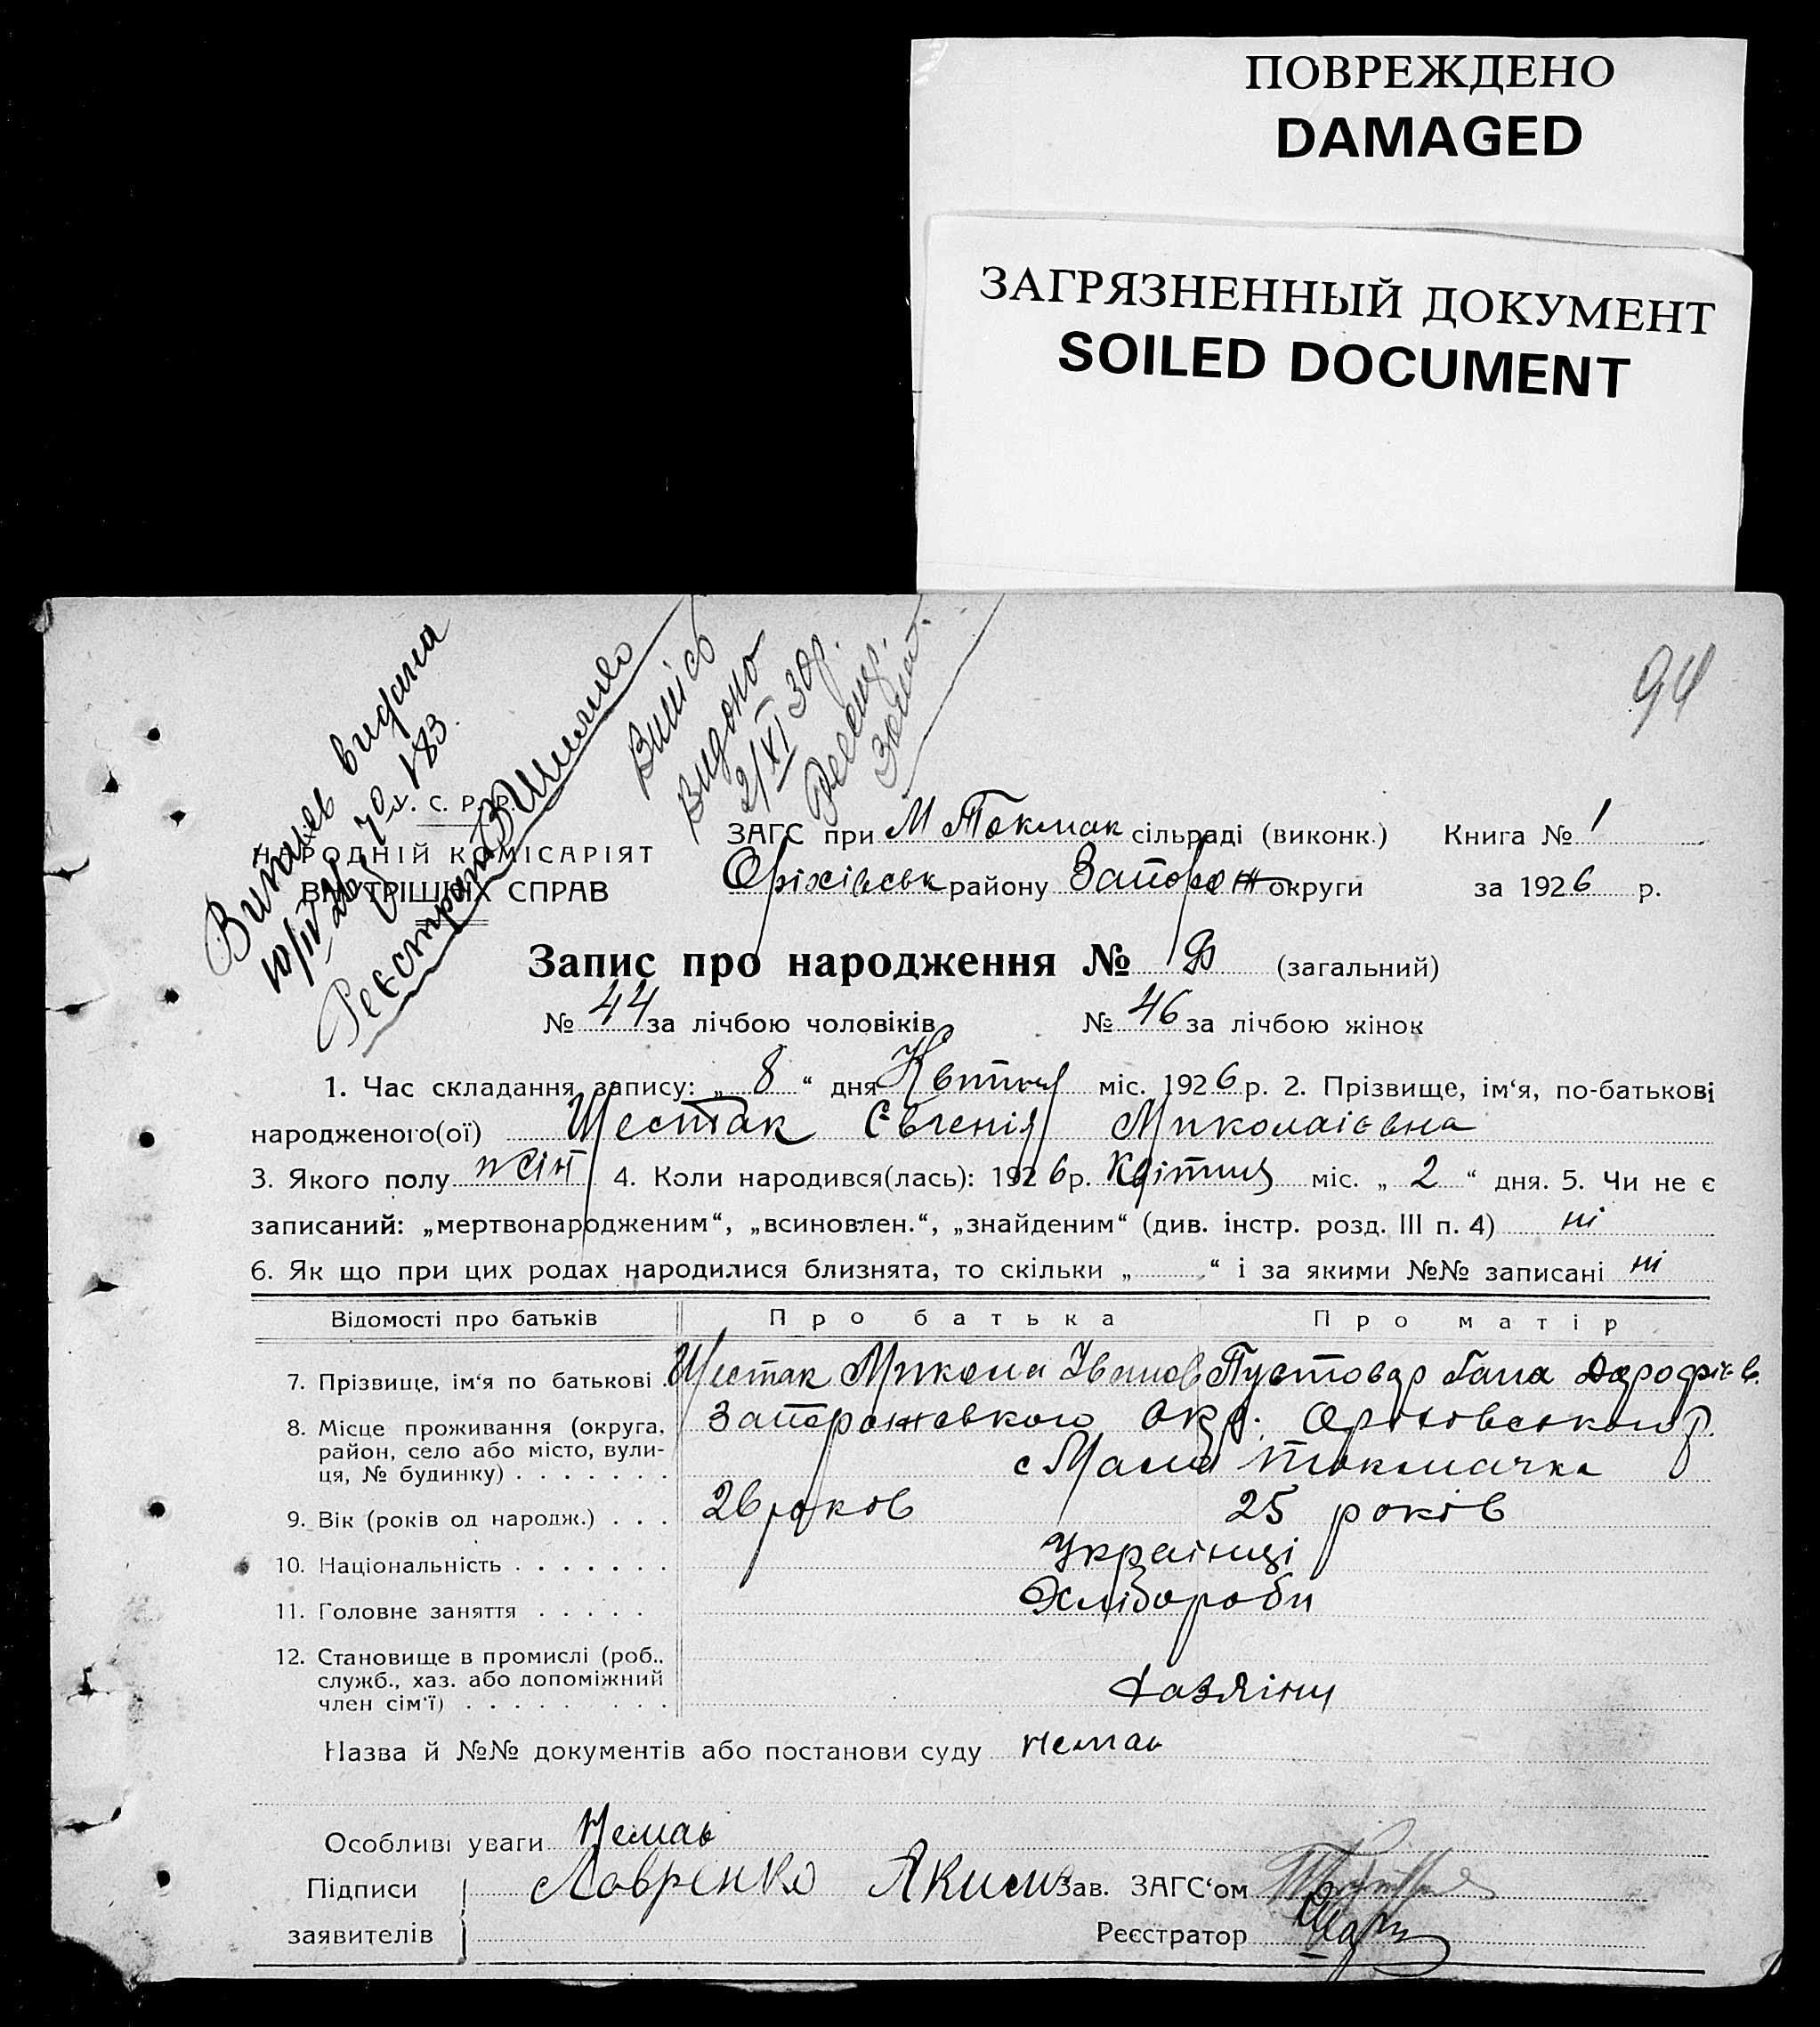 ПОВРЕЖДЕНО
DAMAGED
ЗАГРЯЗНЕННЫЙ ДОКУМЕНТ
SOILED DOCUMENT
94
Витяг видана
10/IV 26 р. 183.
Реєстрація
Випісь
видано
2/XI 30р.
У. С. Р. Р.
НАРОДНІЙ КОМІСАРІЯТ
ВНУТРІШНІХ СПРАВ
ЗАГС при М Токмак сільраді (виконк.) Книга № 1
Оріхівськ району Запорож округи за 1926 р.
Запис про народження № 90 (загальний)
№ 44 за лічбою чоловіків № 46 за лічбою жінок
1. Час складання запису: „ 8 “ дня Квітня міс. 1926 р. 2. Прізвище, ім‘я, по-батькові
народженого(ої) Шестак Євгенія Миколаієвна
3. Якого полу жін 4. Коли народився(лась): 1926 р. Квітня міс. „ 2 “ дня. 5. Чи не є
записаний: „мертвонародженим“, „всиновлен.“, „знайденим“ (див. інстр. розд. III п. 4) ні
6. Як що при цих родах народилися близнята, то скільки „ “ і за якими №№ записані ні
Відомості про батьків Про батька Про матір
7. Прізвище, ім‘я по батькові Шестак Микола Іванов Пустовар Гана Дорофієв.
8. Місце проживання (округа, Запорожського окр. Оріховського р.
район, село або місто, вули-
ця, № будинку) с Мала Токмачка
9. Вік (років од народж.) 26 роков 25 років
10. Національність Украінці
11. Головне заняття Хлібороби
12. Становище в промислі (роб.,
служб., хаз. або допоміжний
член сім‘ї) Хазяіни
Назва й №№ документів або постанови суду немає
Особливі уваги Немає
Підписи Лавренко Яким Зав. ЗАГС‘ом
заявителів Реєстратор